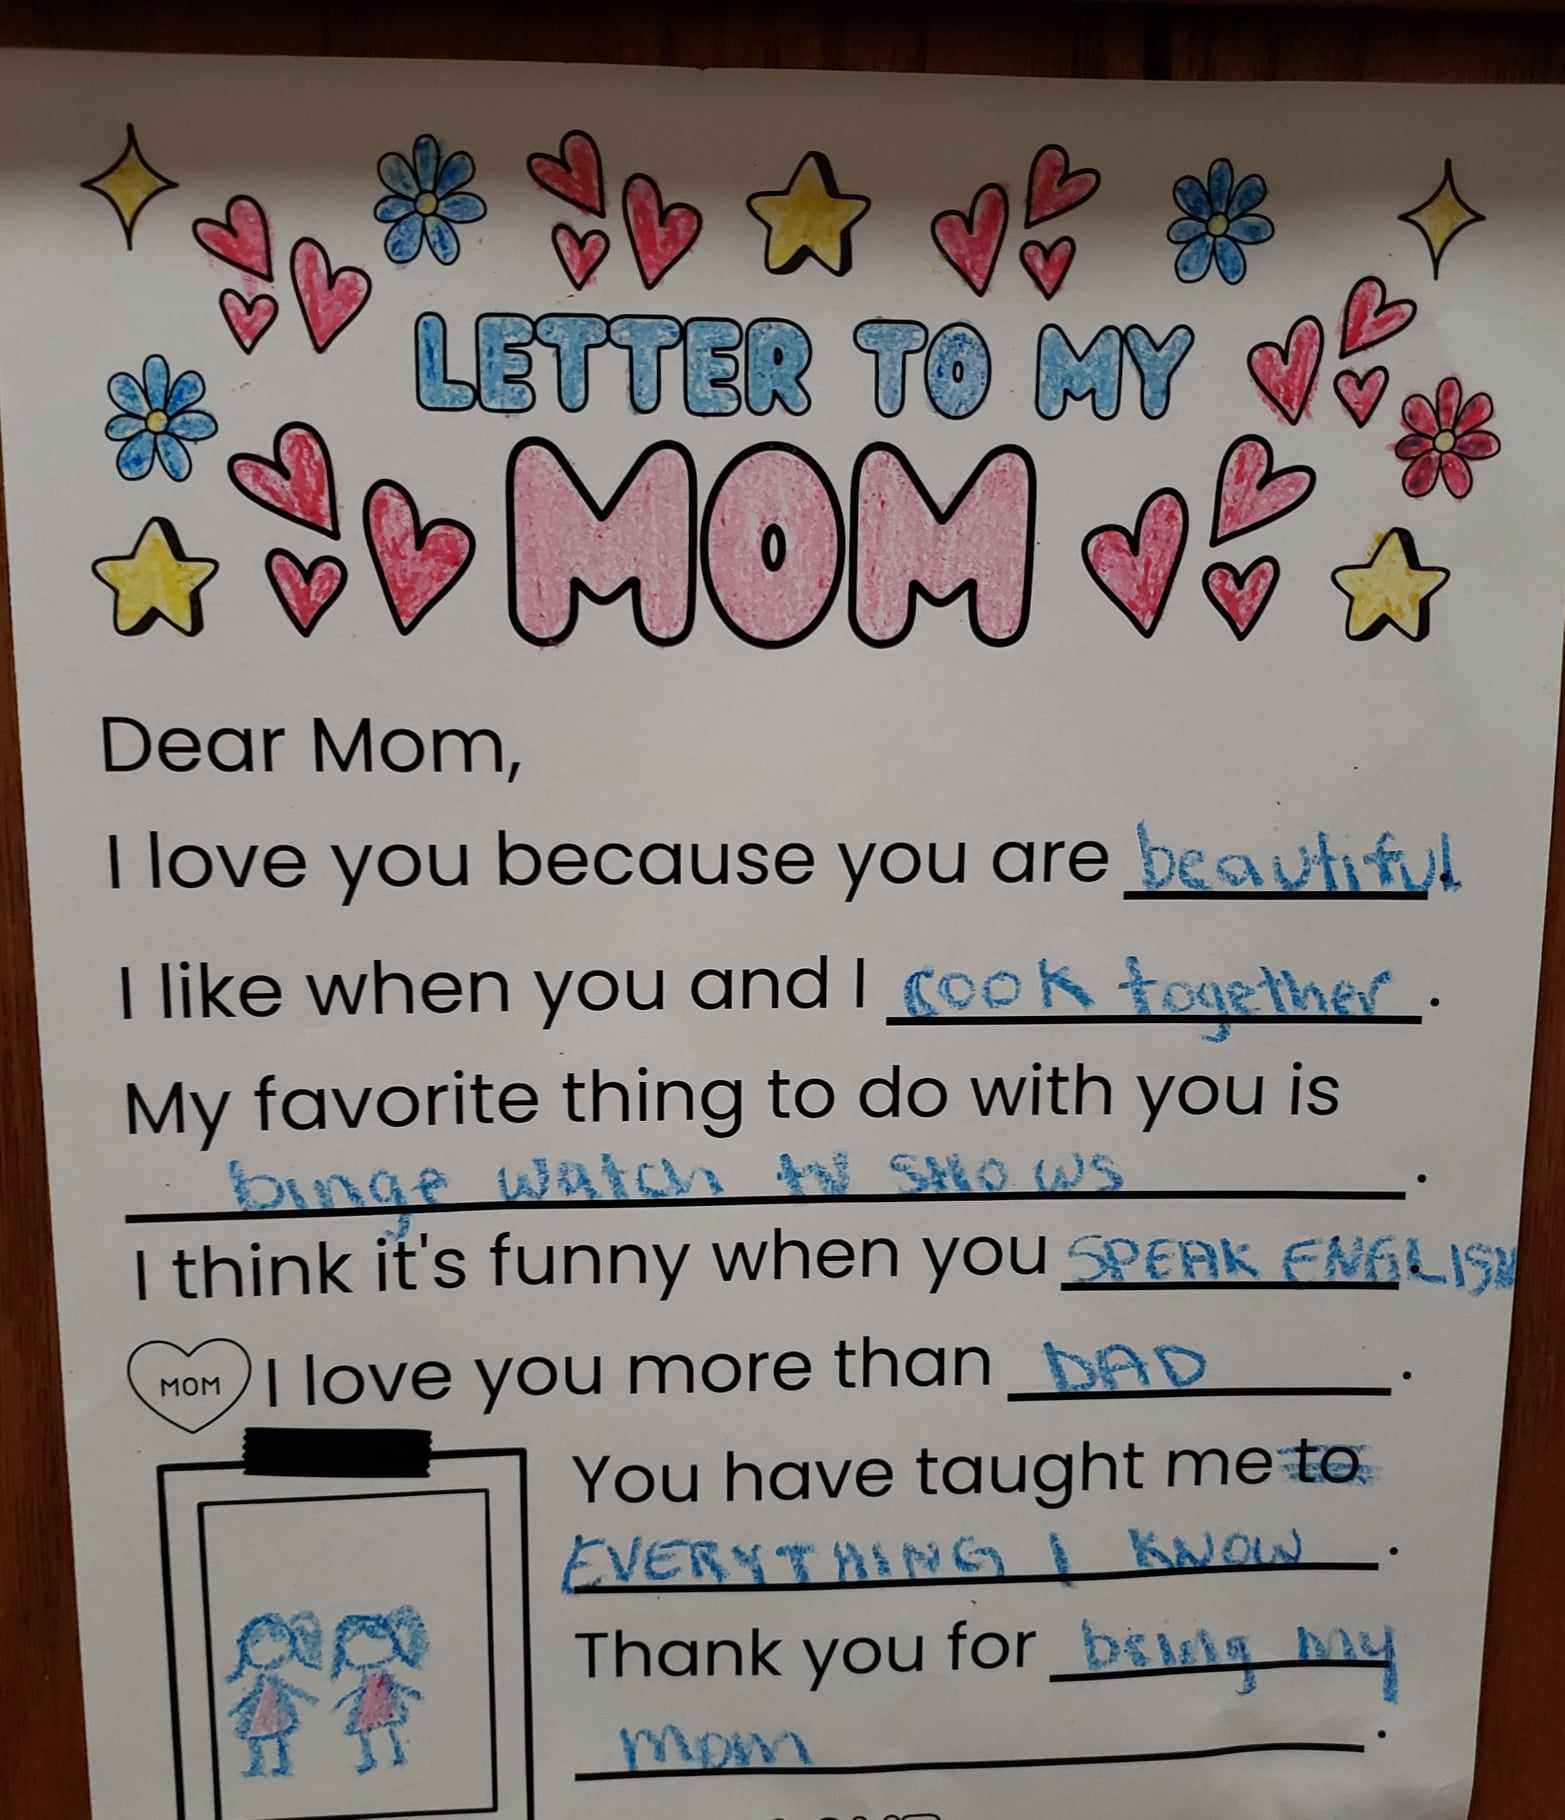 LETTER TO MY
MOM
Dear Mom,
I love you because you are beautiful.
I like when you and I cook together.
My favorite thing to do with you is
binge watch tv shows.
I think it's funny when you SPEAK ENGLISH.
MOM I love you more than DAD.
You have taught me to
EVERYTHING I KNOW.
Thank you for being my
mom.